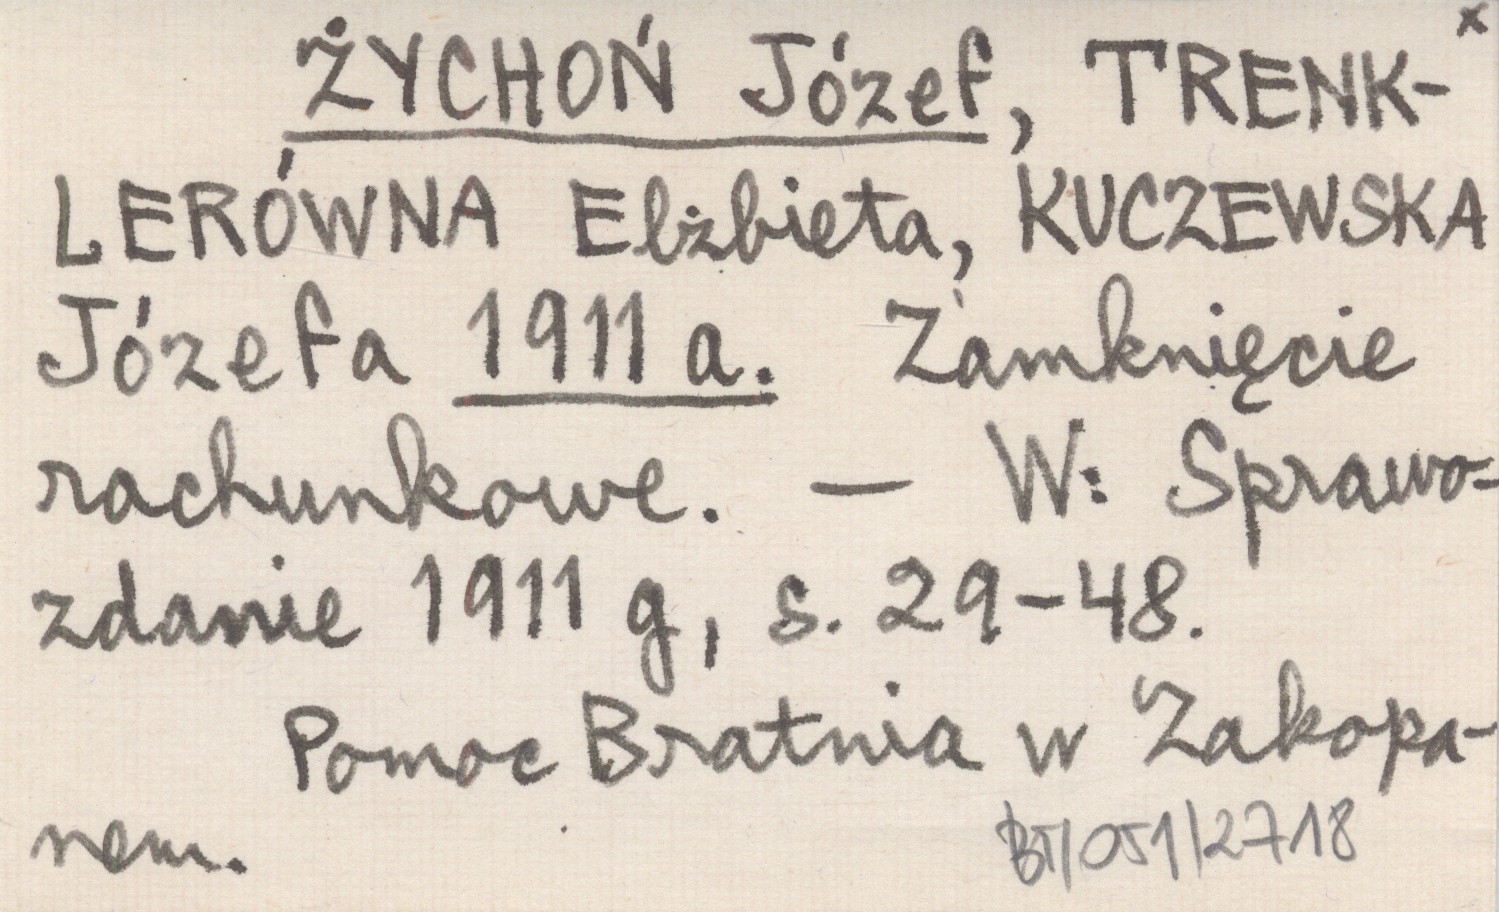 x
ŻYCHOŃ Józef, TRENK-
LERÓWNA Elżbieta, KUCZEWSKA
Józefa 1911 a. Zamknięcie
rachunkowe. — W: Sprawo-
zdanie 1911 g, s. 29-48.
Pomoc Bratnia w Zakopa-
nem.
BT/051/2718